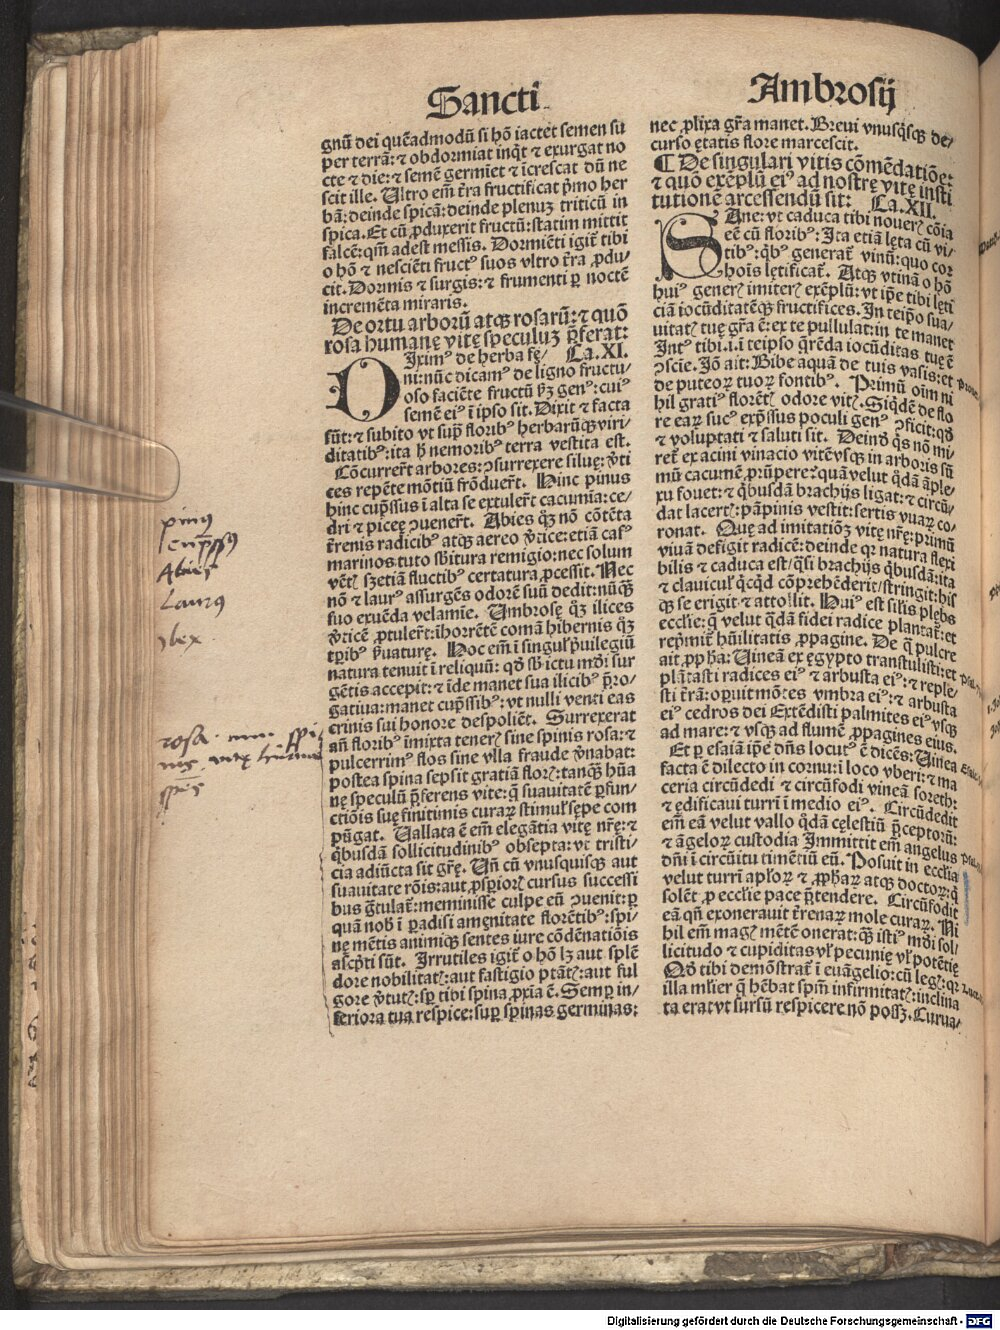 Sancti
Ambrosij
gnū dei quēadmodū si hō iactet semen su
per terrā: ⁊ obdormiat inq̄t ⁊ exurgat no
cte ⁊ die: ⁊ semē germiet ⁊ īcrescat dū ne
scit ille. Ultro em̄ t̄ra fructificat p̄mo her
bā: deinde spicā: deinde plenuȝ triticū in
spica. Et cū ꝓduxerit fructū: statim mittit
falcē: qm̄ adest messis. Dormiēti igit̄ tibi
o hō ⁊ nesciēti fructꝰ suos vltro t̄ra ꝓdu-
cit. Dormis ⁊ surgis: ⁊ frumenti ꝑ noctē
incremēta miraris.
De ortu arborū atqꝫ rosarū: ⁊ quō
rosa humanę vitę speculuȝ p̄ferat:
Iximꝰ de herba fę/ Ca. XI.
ni: nūc dicamꝰ de ligno fructu-
oso faciēte fructū ꝟȝ genꝰ: cuiꝰ
semē eiꝰ ī ipso sit. Dixit ⁊ facta
sūt: ⁊ subito vt sup̄ floribꝰ herbarūqꝫ viri-
ditatibꝰ: ita h̄ nemoribꝰ terra vestita est.
Cōcurrer̄t arbores: ꝯsurrexere siluę: ꝟti
ces repēte mōtiū frōduer̄t. Hinc pinus
hinc cup̄ssus ī alta se extuler̄t cacumīa: ce-
dri ⁊ piceę ꝯuener̄t. Abies qꝫ nō cōtēta
t̄renis radicibꝰ atqꝫ aereo ꝟtice: etiā casꝰ
marinos tuto sb̄itura remigio: nec solum
vētꝭ sꝫ etiā fluctibꝰ certatura ꝓcessit. Nec
nō ⁊ laurꝰ assurgēs odorē suū dedit: nūqꝫ
suo exuēda velamie. Umbrosę qꝫ ilices
ꝟticē ꝓtuler̄t: īhorrētē comā hibernis qꝫ
tꝑibꝰ ẜuaturę. Hoc em̄ ī singulꝭ p̄uilegiū
natura tenuit ī reliquū: qd̄ sb̄ ictu mūdi sur
gētis accepit: ⁊ īde manet sua ilicibꝰ p̄ro-
gatiua: manet cup̄ssibꝰ: vt nulli venti eas
crinis sui honore despoliēt. Surrexerat
an̄ floribꝰ īmixta tenerꝭ sine spinis rosa: ⁊
pulcerrimꝰ flos sine vlla fraude ꝟnabat:
postea spina sepsit gratiā florꝭ: tanqꝫ hūa
nę speculū p̄ferens vite: q̄ suauitatē ꝑfun-
ctiōis suę finitimis curaꝝ stimulꝭ sępe com
pūgat. Uallata ē em̄ elegātia vitę nr̄ę: ⁊
q̄busdā sollicitudinibꝰ obsepta: vt tristi-
cia adiūcta sit gr̄ę. Un̄ cū vnusquisqꝫ aut
suauitate rōis: aut ꝓsꝑiorꝭ cursus successi
bus ḡtulat̄: meminisse culpe eū ꝯuenit: ꝑ
quā nob̄ ī ꝑadisi amęnitate florētibꝰ: spi-
nę mētis animiqꝫ sentes iure cōdēnatiōis
asc̄pti sūt. Irrutiles igit̄ o hō lꝫ aut splē
dore nobilitatꝭ: aut fastigio ptātꝭ: aut ful
gore ꝟtutꝭ: sꝑ tibi spina ꝓxīa ē. Semꝑ in/
feriora tua respice: suꝑ spinas germinas:
nec ꝓlixa gr̄a manet. Breui vnusq̄sqꝫ de/
curso ętatis flore marcescit.
¶ De singulari vitis cōmēdatiōe:
⁊ quō exēplū eiꝰ ad nostrę vitę insti
tutionē arcessendū sit: Ca. XII.
SAne: vt caduca tibi nouerꝭ cōia
eē cū floribꝰ: Ita etiā lęta cū vi-
tibꝰ: q̄bꝰ generat̄ vinū: quo cor
hoīs lętificat̄. Atqꝫ vtinā o hō
huiꝰ generꝭ imiterꝭ exēplū: vt ip̄e tibi lęti
ciā iocūditatēqꝫ fructifices. In teip̄o sua/
uitatꝭ tuę gr̄a ē: ex te pullulat: in te manet
Intꝰ tibi. i. i teipso q̄rēda iocūditas tuę ē
ꝯscie. Iō ait: Bibe aquā de tuis vasis: et
de puteoꝝ tuoꝝ fontibꝰ. Primū oīm ni
hil gratiꝰ florētꝭ odore vitꝭ. Siq̄dē de flo
re eaꝝ sucꝰ exp̄ssus poculi genꝰ ꝯficit: qd̄
⁊ voluptati ⁊ saluti sit. Deinđ q̄s nō mi/
ret̄ ex acini vinacio vitē vsqꝫ in arboris sū
mū cacumē ꝓrūpere: quā velut q̄dā āple/
xu fouet: ⁊ q̄busdā brachijs ligat: ⁊ circū/
dat lacertꝭ: pāpinis vestit: sertis vuaꝝ co/
ronat. Quę ad imitatiōȝ vitę nr̄ę: primū
viuā defigit radicē: deinde qꝛ natura flexi
bilis ⁊ caduca est/ q̄si brachijs q̄busdā: ita
⁊ clauiculꝭ q̄cqd̄ cōprehēderit/ stringit: his
qꝫ se erigit ⁊ attollit. Huiꝰ est sil̄is plębs
ecclie: q̄ velut q̄dā fidei radice plantat̄: et
rep̄mit̄ hūilitatis ꝓpagine. De q̄ pulcre
ait ꝓpha: Uineā ex ęgypto transtulisti: et
plātasti radices eiꝰ ⁊ arbusta eiꝰ: ⁊ reple/
sti t̄rā: oꝑuit mōtes vmbra eiꝰ: ⁊ arbusta
eiꝰ cedros dei Extēdisti palmites eiꝰ vsqꝫ
ad mare: ⁊ vsqꝫ ad flumē ꝓpagines eius.
Et ꝑ esaiā ip̄e dn̄s locutꝰ ē dicēs: Uinea
facta ē dilecto in cornu: ī loco vberi: ⁊ ma
ceria circūdedi ⁊ circūfodi vineā soreth:
⁊ ędificaui turrī ī medio eiꝰ. Circūdedit
em̄ eā velut vallo q̄dā cęlestiū p̄ceptorū:
⁊ āgeloꝝ custodia Immittit em̄ angelus
dn̄i ī circūitu timētiū eū. Posuit in ecclīa
velut turrī apl̄oꝝ ⁊ ꝓphaꝝ atqꝫ doctoꝝ: q̄
solēt ꝓ ecclie pace p̄tendere. Circūfodit
eā qn̄ exonerauit t̄renaꝝ mole curaꝝ. Ni
hil em̄ magꝭ mētē onerat: qꝫ istiꝰ mūdi sol/
licitudo ⁊ cupiditas vl̄ pecunię vl̄ potētię
Qd̄ tibi demōstrat̄ ī euāgelio: cū legꝭ: qꝛ
illa mlier q̄ hēbat spm̄ infirmitatꝭ: inclina
ta erat vt sursū respicere nō possꝫ. Curua/
pinus
cup̄ssus
Abies
Laurus
ylex.
rosa.
spēs